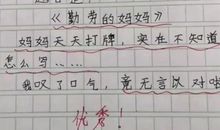 《勤劳的妈妈》
妈妈天天打牌，实在不知道
怎么写……
我叹了口气，竟无言以对啦
优秀！